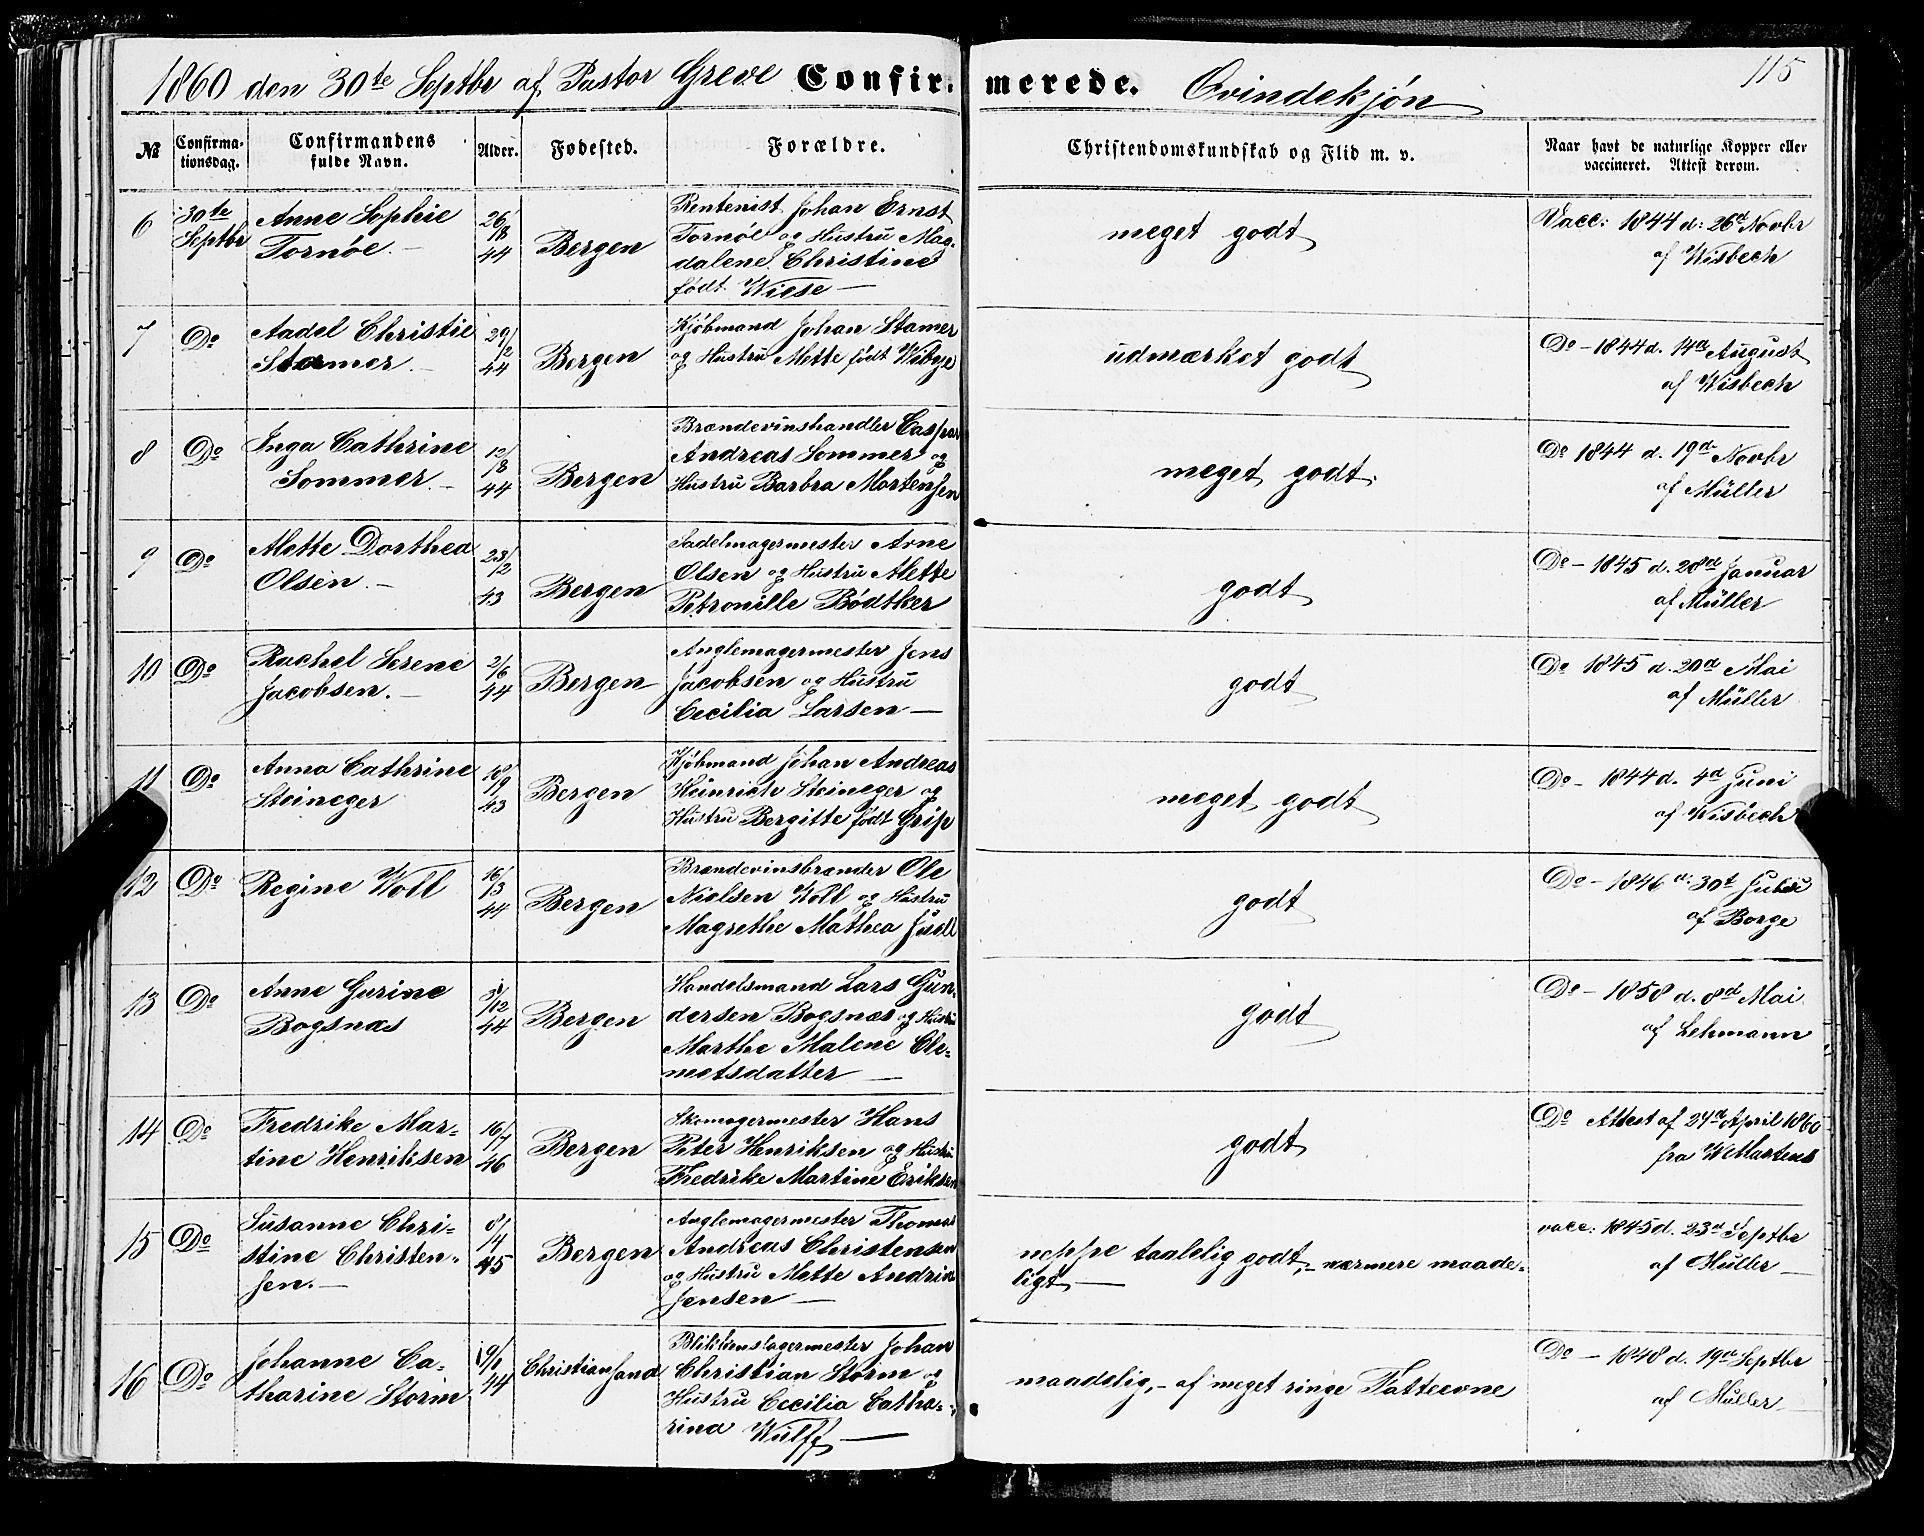 1860 den 30te Septbr af Pastor Greve Confir- merede. Qvindekjøn 115
№ Confirma-tionsdag. Confirmandens fulde Navn. Alder. Fødested. Forældre. Christendomskundskab og Flid m. v. Naar havt de naturlige Kopper eller vaccineret. Attest derom.
6 30te Septbr
Anne Sophie
Tornøe. —
26/8 44
Bergen
Rentenist Johan Ernst
Tornøe og Hustru Mag-
dalene Christine
født Wiese —
meget godt
Vacc: 1844 d: 26d Novbr
af Wisbech
7 Do
Aadel Christie
Stamer. —
29/2 44
Bergen
Kjøbmand Johan Stamer
og Hustru Mette født Wibye
udmærket godt
Do — 1844 d. 14d August
af Wisbech
8 Do
Inga Cathrine
Sommer. —
12/8 44
Bergen
Brændevinshandler Caspar
Andreas Sommer og
Hustru Barbra Mortensen
meget godt.
Do 1844 d. 19d Novbr
af Müller
9 Do
Alette Dorthea
Olsen. —
23/2 43
Bergen
Sadelmagermester Arne
Olsen og Hustru Alette
Petronille Bødtker
godt
Do — 1845 d. 28d Januar
af Müller
10 Do
Rachel Serene
Jacobsen. —
2/6 44
Bergen
Anglemagermester Jens
Jacobsen og Hustru
Cecilia Larsen —
godt
Do 1845 d. 20d Mai
af Müller
11 Do
Anna Cathrine
Steineger
18/9 43
Bergen
Kjøbmand Johan Andreas
Heinrich Steineger og
Hustru Bergitte født Grip
meget godt
Do — 1844 d. 4d Juni
af Wisbech
12 Do
Regine Woll
16/3 44
Bergen
Brændevinsbrænder Ole
Nielsen Woll og Hustru
Magrethe Mathea Juell
godt
Do — 1846 d: 30t
af Borge
13 Do
Anne Gurine
Bogsnæs
31/12 44
Bergen
Handelsmand Lars Gun-
dersen Bogsnæs og Hustru
Marthe Malene Cle-
metsdatter —
godt
Do — 1858 d. 8d Mai
af Lehmann
14 Do
Fredrike Mar-
tine Henriksen
16/7 46
Bergen
Skomagermester Hans
Peter Henriksen og Hustru
Fredrike Martine Eriksen
godt
Do Attest af 24d April 1860
fra W Martens
15 Do
Susanne Chri-
stine Christen-
sen. —
45
Bergen
Anglemagermester Thomas
Andreas Christensen
og Hustru Mette Andrea
Jensen —
neppe taalelig godt, — nærmere maade-
ligt, —
vacc: 1845 d. 23d Septbr
af Müller —
16 Do
Johanne Ca-
tharine Storm
19/1 44
Christiansand
Blikkenslagermester Johan
Christian Storm og
Hustru Cecilia Catha-
rina Wulff —
maadelig, — af meget ringe Fatteevne
Do — 1848 d. 19d Septbr
af Müller —